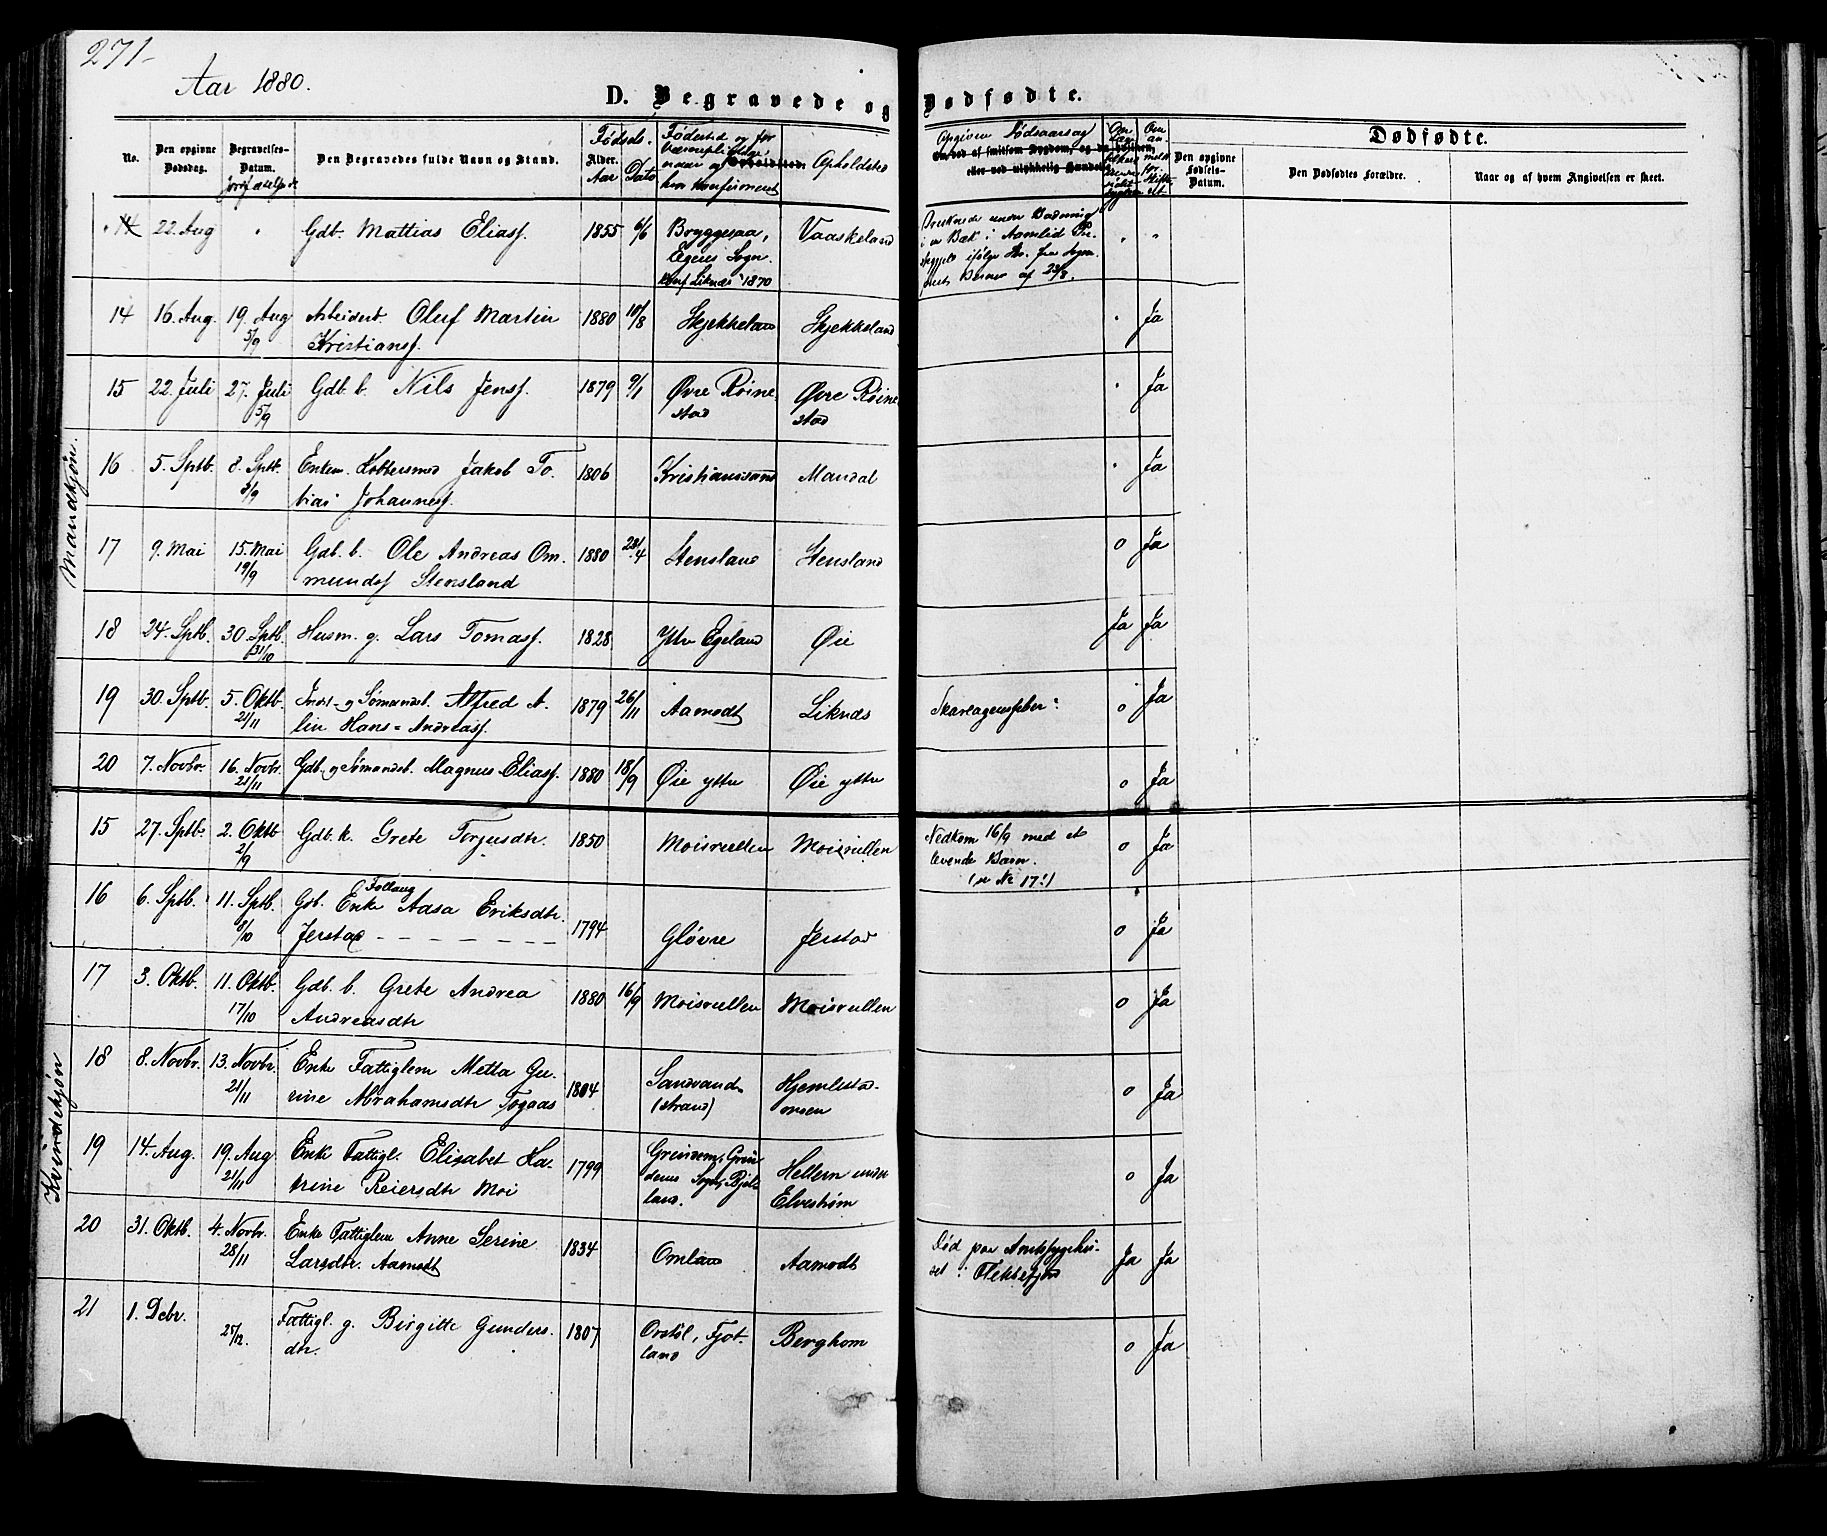 271-
Aar 1880.
D. Begravede og Dødfødte.
No.
Den opgivne Dødsdag.
Begravelses-Datum. Jordfæstelse
Den Begravedes fulde Navn og Stand.
Fødsels-
Alder. Aar
Dato
Fødested og for
naar og
hvor konfirmeret
Opholdsted
Opgiven Dødsaarsag
Dødfødte.
Den opgivne Fødsels-Datum.
Den Dødfødtes Forældre.
Naar og af hvem Angivelsen er skeet.
Mandkjøn.
14 22. Aug " Gdb. Mattias Eliass. 1855 6/6 Bryggesaa, Vaaskeland Druknede under Badning
Egens Sogn. i en Bæk i Aamlid
konf. Liknæs 1870
14 16. Aug. 19. Aug Arbeiderb. Oluf Martin 1880 10/8 Skjekkeland Skjekkeland " Ja
5/9 Kristianss.
15 22. Juli 27. Juli Gdb. b. Nils Jenss. 1879 9/1 Øvre Røine Øvre Røine " Ja
5/9 stad stad
16 5. Sptb. 8. Sptb. Enkem. Kobbersmed Jakob To- 1806 Kristianssand Mandal " Ja
bias Johanness.
17 9. Mai 15. Mai Gdb. b. Ole Andreas Om- 1880 28/4 Stensland Stensland o Ja
19/9 mundss Stensland
18 24. Sptb. 30. Sptb. Husm. g. Lars Tomass. 1828 Ytre Egeland Øie Ja Ja
31/10
19 30. Sptb. 5. Oktb. Inds- og Sømandsb. Alfred A- 1879 26/11 Aamodt Liknæs Skarlagensfeber o Ja
21/11 lin Hans-Andreass.
20 7. Novbr. 16. Novbr. Gdb- og Sømandsb. Magnus Eliass. 1880 18/9 Øie ytre Øie ytre o Ja
21/11
Kvindekjøn
15 27. Sptb. 2. Oktb Gdb. k. Grete Torjusdtr. 1850 Moisvullen Moisvullen Nedkom 16/9 med et o Ja
2/9 levende Barn.
(se No 17!)
16 6. Sptb. 11. Sptb. Gdb. Enke Aasa Eriksdtr. 1794 Gløvre Jerstad o Ja
Føllaug
/10 Jerstad - - - - - - -
17 3. Oktb. 11. Oktb. Gdb. b. Grete Andrea 1880 16/9 Moisvullen Moisvullen o Ja
17/10 Andreasdtr
18 8. Novbr. 13. Novbr. Enke Fattiglem Metta Gu- 1804 Sandvand Hjemlestad- o Ja
21/11 rine Abrahamsdtr Togaas (strand) onsen
19 14. Aug. 19. Aug Enke Fattigl. Elisabet Ka- 1799 Grindem, Grin- Hellern under o Ja
21/11 trine Reiersdtr Moi dems Sogn, Bjel- Elvestrøm
land.
20 31. Oktb. 4. Novbr. Enke Fattiglem Anne Serine 1834 Omland Aamodt Død paa Amtssygehu- Ja Ja
28/11 Larsdtr. Aamodt set i Flekkefjord
21 1. Decbr. Fattigl. g. Birgitte Gunders- 1807 Orstøl, Fjot- Berghom o Ja
27/12. dtr. land